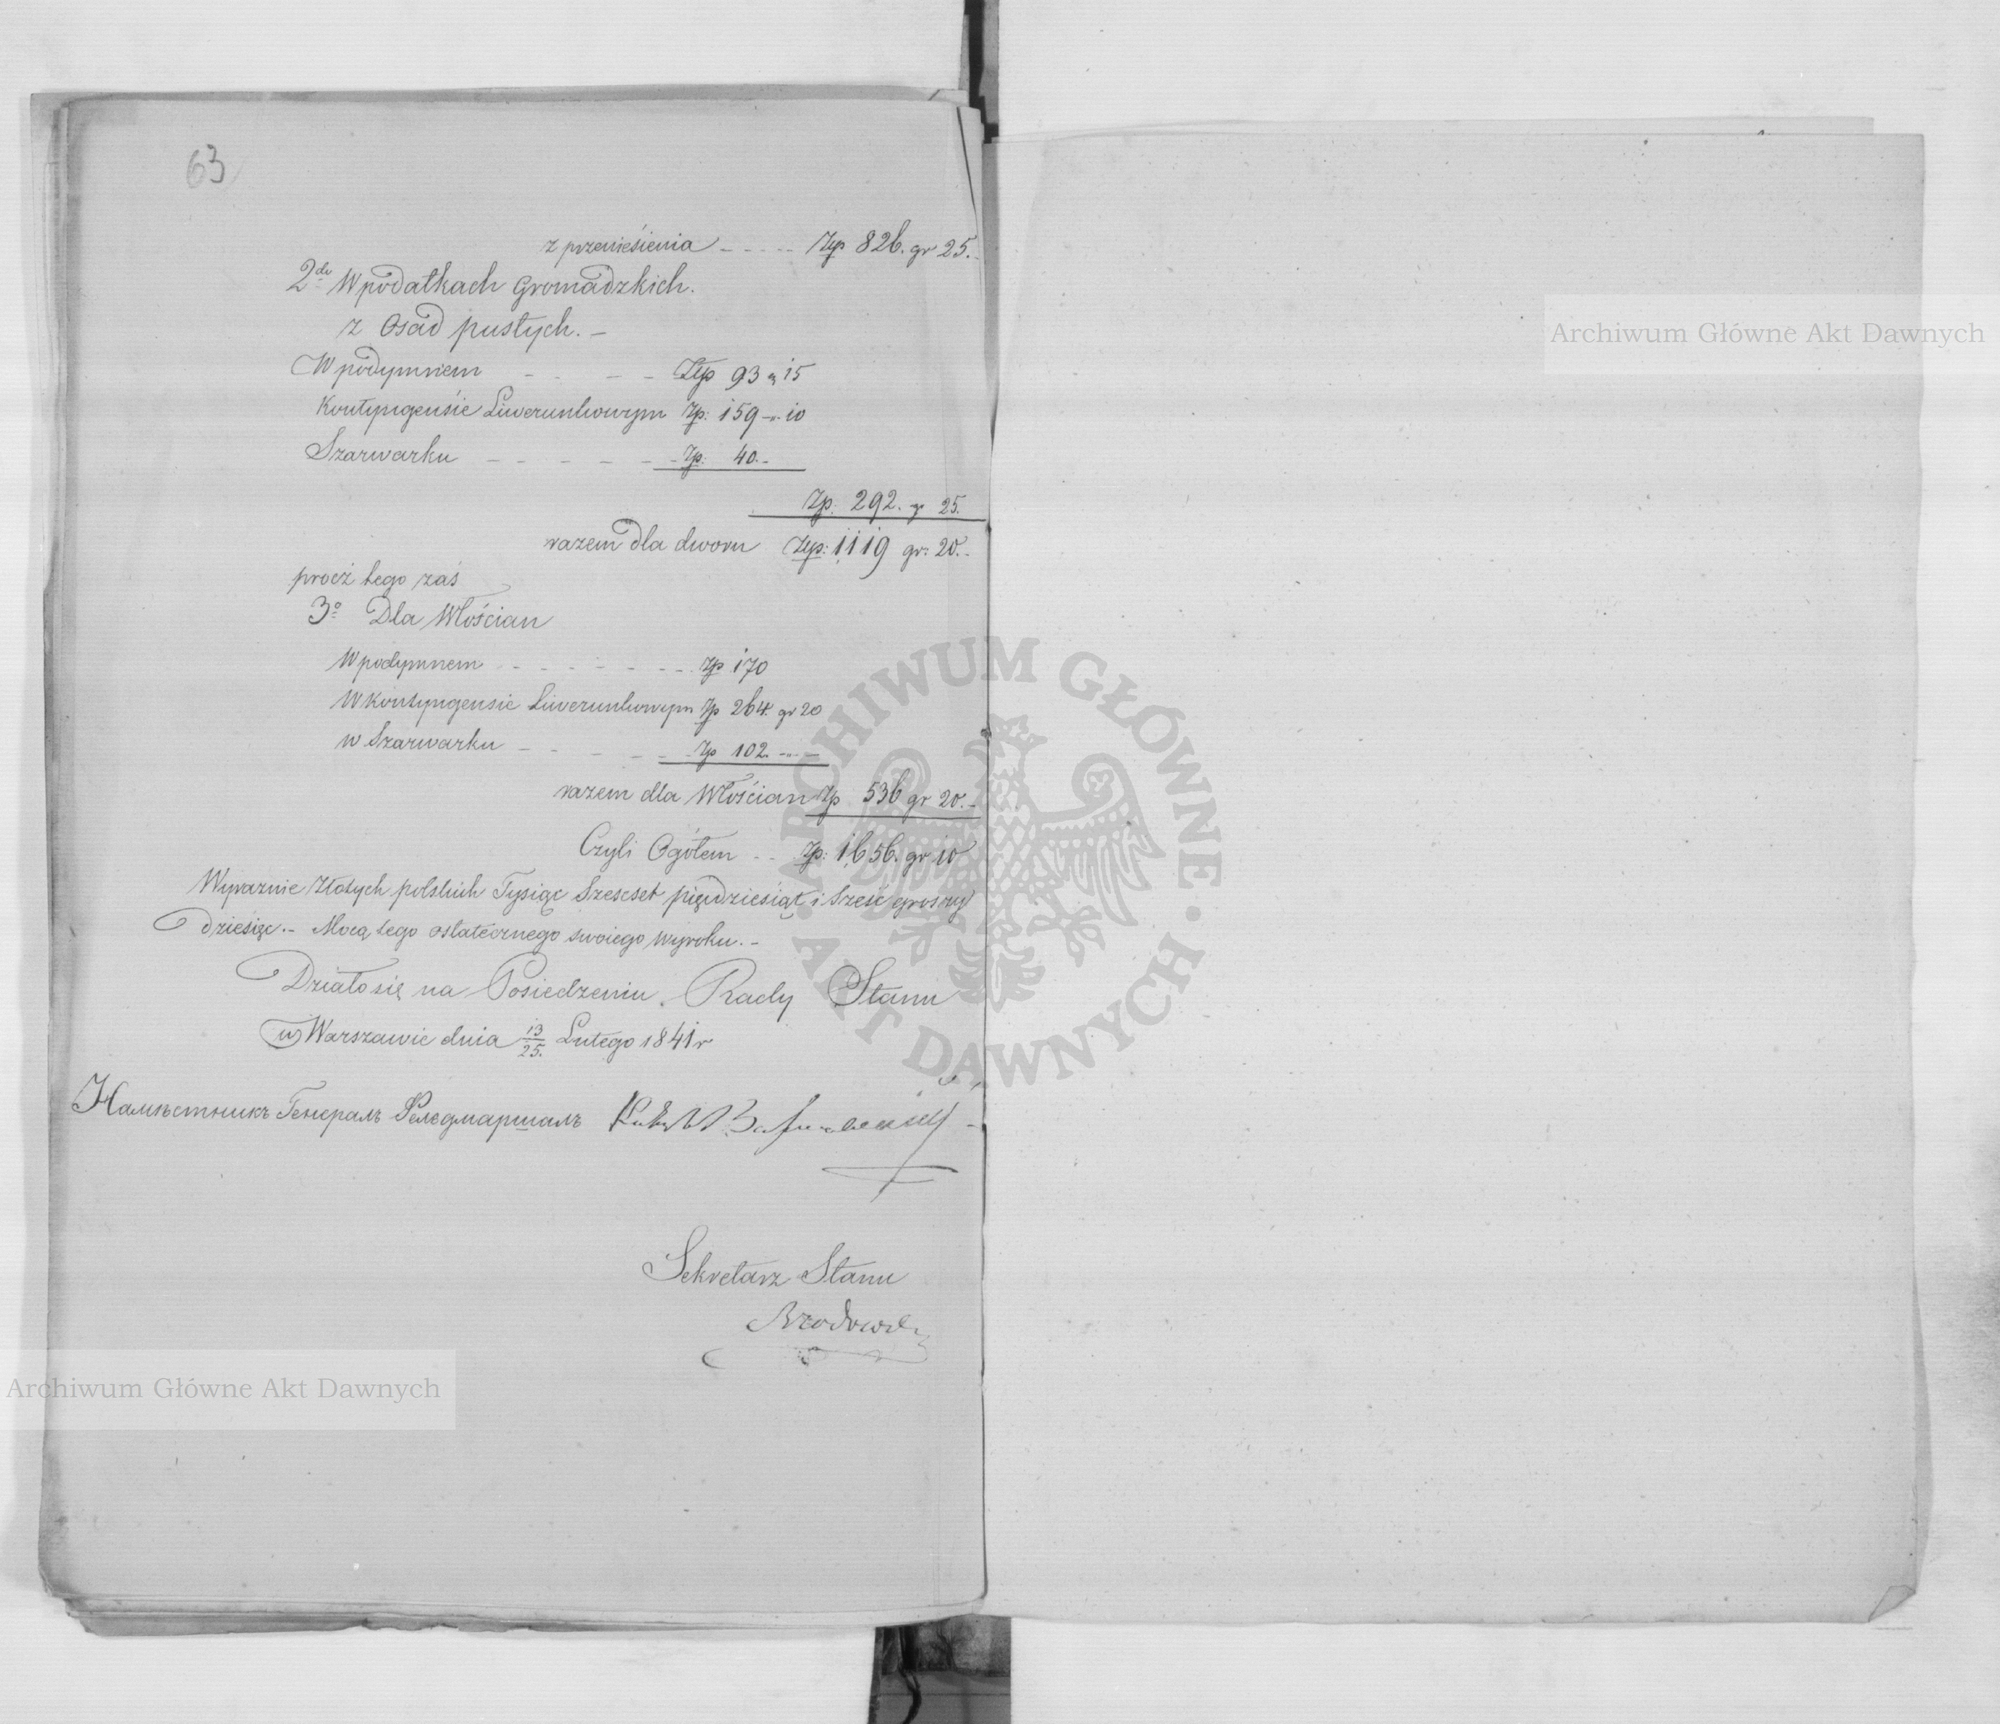 63
z przeniesienia - - - - - Złp 826. gr 25.
2do W podatkach Gromadzkich.
z Osad pustych. -
W podymnem - - - - Złp 93 g 15
Kontyngensie Liwerunkowym Złp: 159 -"- 10
Szarwarku - - - - - - Złp: 40.-
Złp: 292. gr 25.
razem dla dworu Złp: 1,119 gr: 20.-
procz tego zaś
3o Dla Włościan
W podymnem - - - - - - - - Złp 170
W Kontyngensie Liwerunkowym Złp 264. gr 20
w Szarwarku - - - - - - Złp 102 -"- -
razem dla Włościan Złp 536 gr 20.-
Czyli Ogółem - - Złp: 1,656. gr 10
Wyraznie złotych polskich Tysiąc Szescset pięćdziesiąt i Sześć groszy
dziesięc.- Mocą tego ostatecznego swoiego Wyroku.-
Działo się na Posiedzeniu Rady Stanu
w Warszawie dnia 13/25. Lutego 1841 r
Намѣстникъ Генералъ Фелдмаршалъ
Sekretarz Stanu
Archiwum Główne Akt Dawnych
Archiwum Główne Akt Dawnych
ARCHIWUM GŁÓWNE · AKT DAWNYCH ·